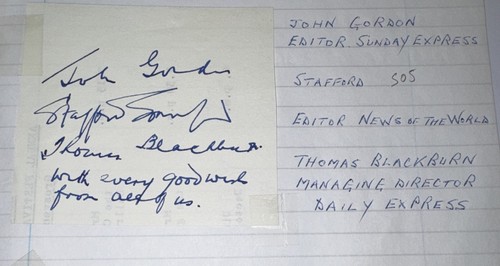 John Gordon
Stafford Somerfield
Thomas Blackburn.
with every good wish
from all of us.
JOHN GORDON
EDITOR SUNDAY EXPRESS
STAFFORD SOS
EDITOR NEWS OF THE WORLD
THOMAS BLACKBURN
MANAGING DIRECTOR
DAILY EXPRESS